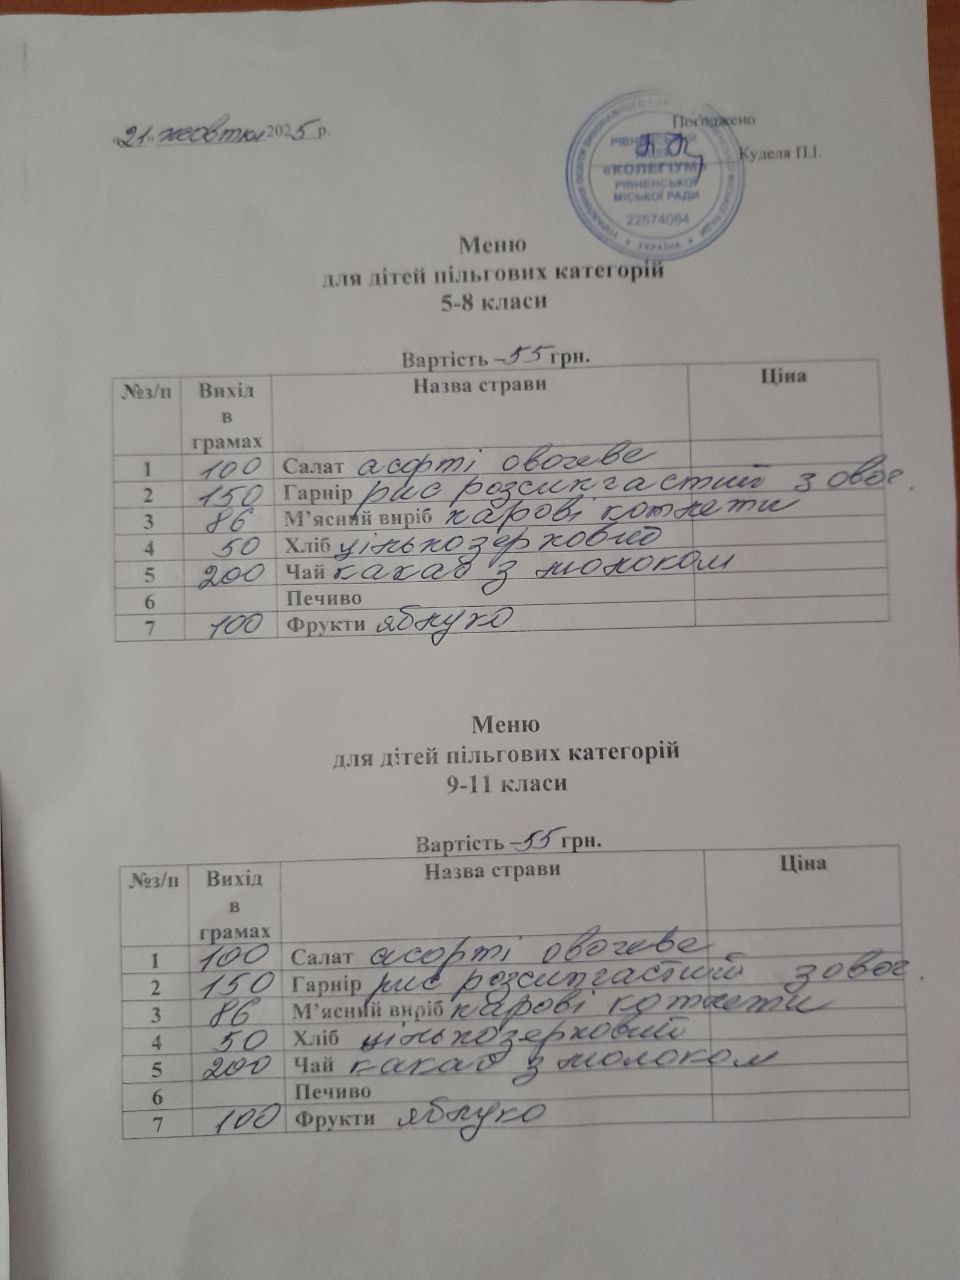 «21» жовтня 2025 р.
Погоджено
Куделя П.І.
РІВНЕНСЬКИЙ
ЛІЦЕЙ
«КОЛЕГІУМ»
РІВНЕНСЬКОЇ
МІСЬКОЇ РАДИ
22574084
УКРАЇНА
Меню
для дітей пільгових категорій
5-8 класи
Вартість – 55 грн.
№з/п Вихід в грамах Назва страви Ціна
1 100 Салат асорті овочеве
2 150 Гарнір рис розсипчастий з овоч.
3 86 М’ясний виріб парові котлети
4 50 Хліб цільнозерновий
5 200 Чай какао з молоком
6 Печиво
7 100 Фрукти яблуко
Меню
для дітей пільгових категорій
9-11 класи
Вартість – 55 грн.
№з/п Вихід в грамах Назва страви Ціна
1 100 Салат асорті овочеве
2 150 Гарнір рис розсипчастий з овоч.
3 86 М’ясний виріб парові котлети
4 50 Хліб цільнозерновий
5 200 Чай какао з молоком
6 Печиво
7 100 Фрукти яблуко